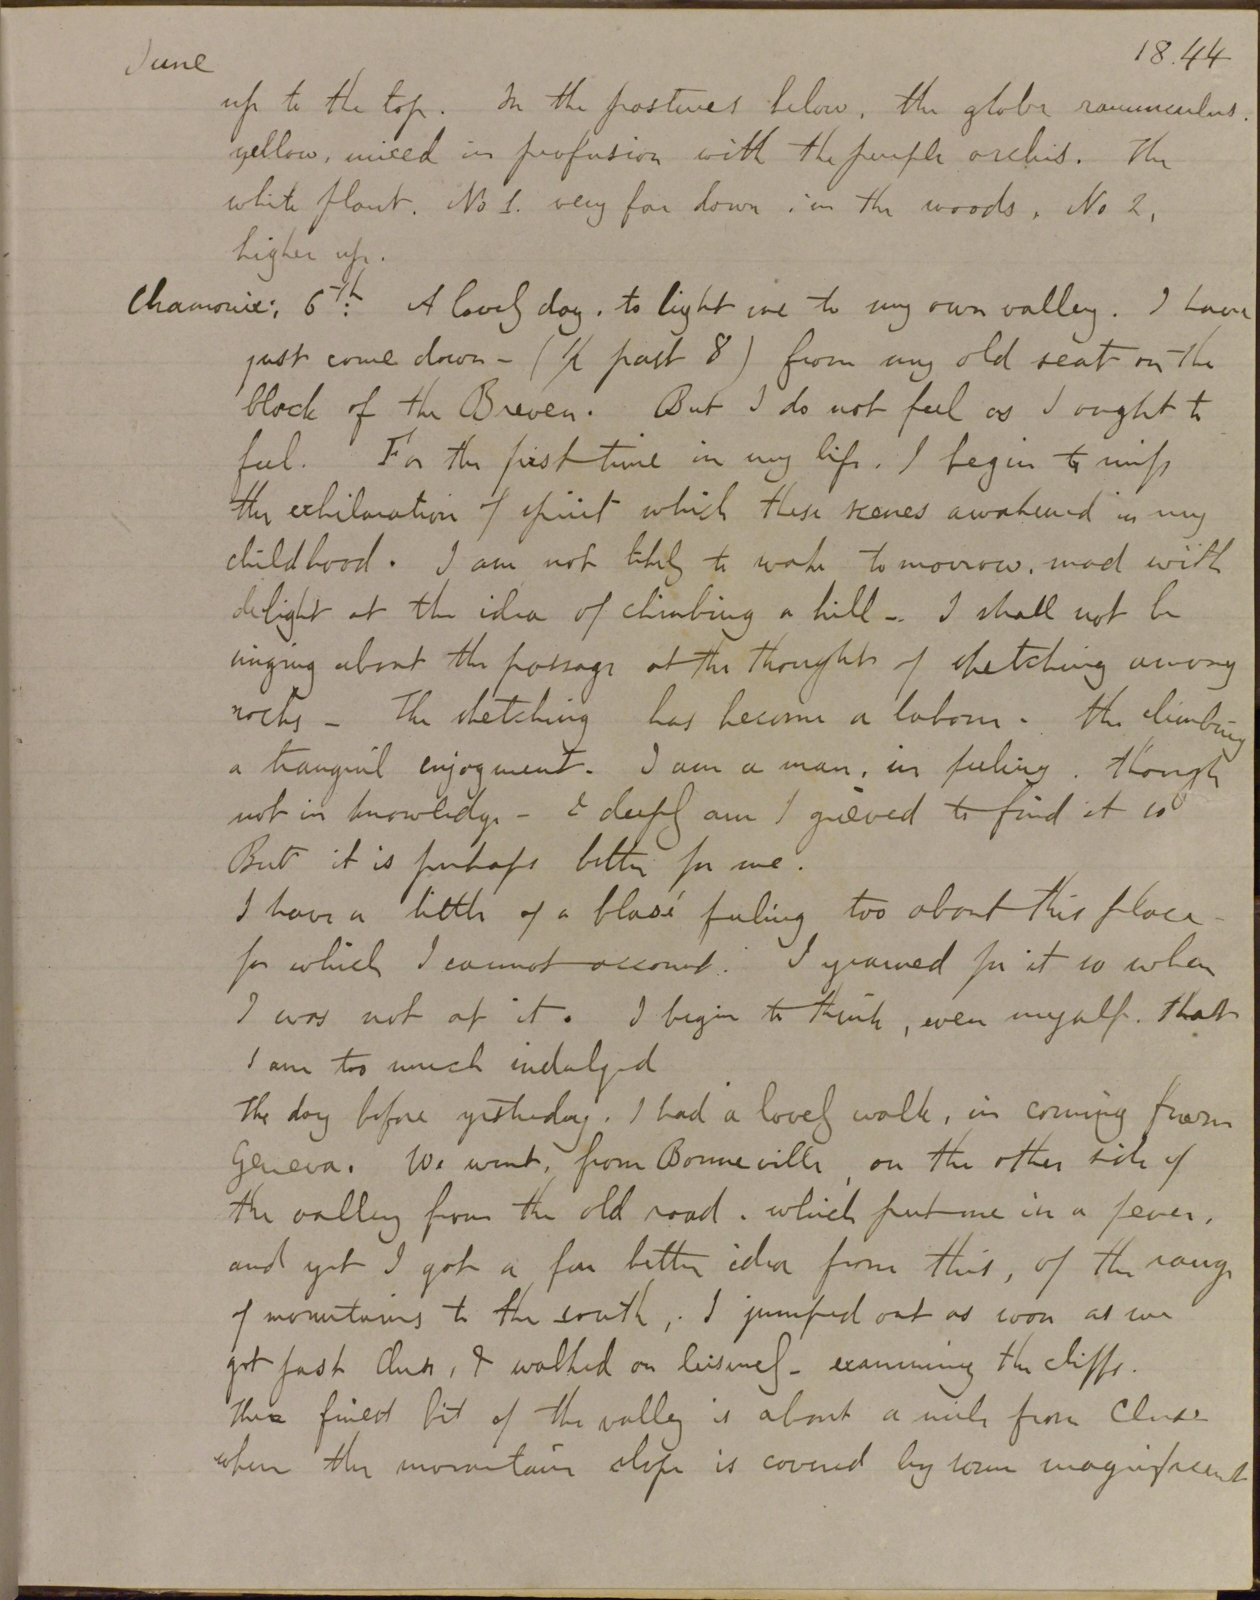 June
1844
up to the top. In the pastures below, the globe ranunculus,
yellow, mixed in profusion with the purple orchis. The
white plant. No 1. very far down in the woods, No 2,
higher up.
Chamonix; 6th. A lovely day, to light me to my own valley. I have
just come down - (1/2 past 8) from my old seat on the
block of the Breven. But I do not feel as I ought to
feel. For the first time in my life, I begin to miss
the exhilaration of spirit which these scenes awakened in my
childhood. I am not likely to wake tomorrow, mad with
delight at the idea of climbing a hill - I shall not be
singing about the passage at the thought of sketching among
rocks - The sketching has become a labour. the climbing
a tranquil enjoyment. I am a man, in feeling, though
not in knowledge - & deeply am I grieved to find it so
But it is perhaps better for me.
I have a little of a blasé feeling too about this place -
for which I cannot account. I yearned for it so when
I was not at it. I begin to think, even myself, that
I am too much indulged
The day before yesterday, I had a lovely walk, in coming from
Geneva. We went, from Bonneville, on the other side of
the valley from the old road. which put me in a fever,
and yet I got a far better idea from this, of the range
of mountains to the south, I jumped out as soon as we
got past Cluse, & walked on leisurely - examining the cliffs.
The finest bit of the valley is about a mile from Cluse
where the mountain slope is covered by some magnificent